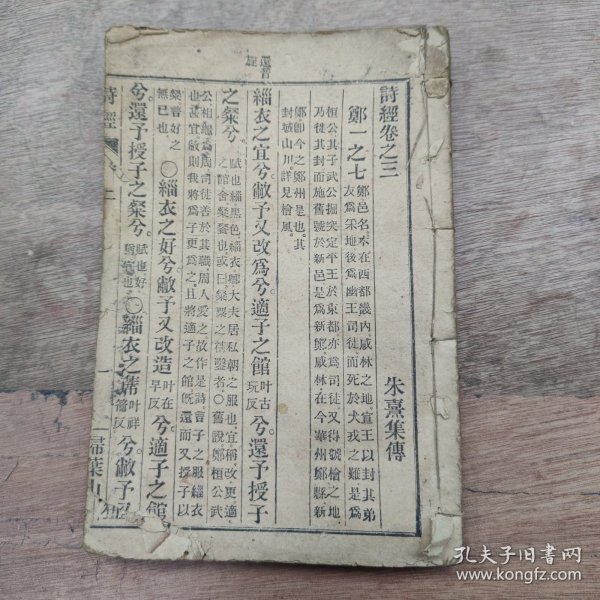 還音
旋
詩經卷之三
朱熹集傳
鄭一之七
鄭邑名本在西都畿內咸林之地宣王以封其弟
友爲采地後爲幽王司徒而死於犬戎之難是爲
桓公其子武公掘突定平王於東都亦爲司徒又得虢檜之地
乃徙其封而施舊號於新邑是爲新鄭咸林在今華州鄭縣新
鄭卽今之鄭州是也其
封域山川詳見檜風
緇衣之宜兮敝予又改爲兮適子之館
叶古
玩反
兮還予授子
之粲兮
賦也緇黑色緇衣卿大夫居私朝之服也宜稱改更適
之館舍粲餐也或曰粲粟之精鑿者○舊說鄭桓公武
公相繼爲周司徒善於其職周人愛之故作是詩言子之服緇衣
也甚宜敝則我將爲子更爲之且將適子之館旣還而又授子以
粲言好之
無已也
○緇衣之好兮敝予又改造
叶在
早反
兮適子之館
兮還予授子之粲兮
賦也好
猶宜也
○緇衣之蓆
叶祥
籥反
兮敝予
詩經
一
掃葉山
孔夫子旧书网
www.kongfz.com